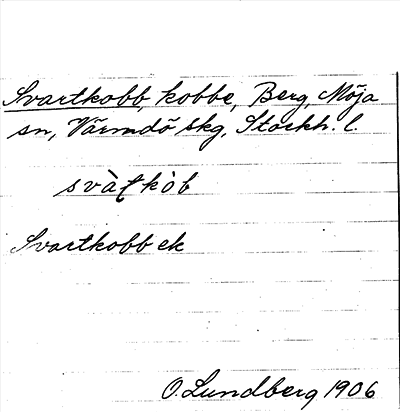 Svartkobb, kobbe, Berg, Möja
sn, Värmdö skg, Stockh. l.
Svartkobb ek
O. Lundberg 1906